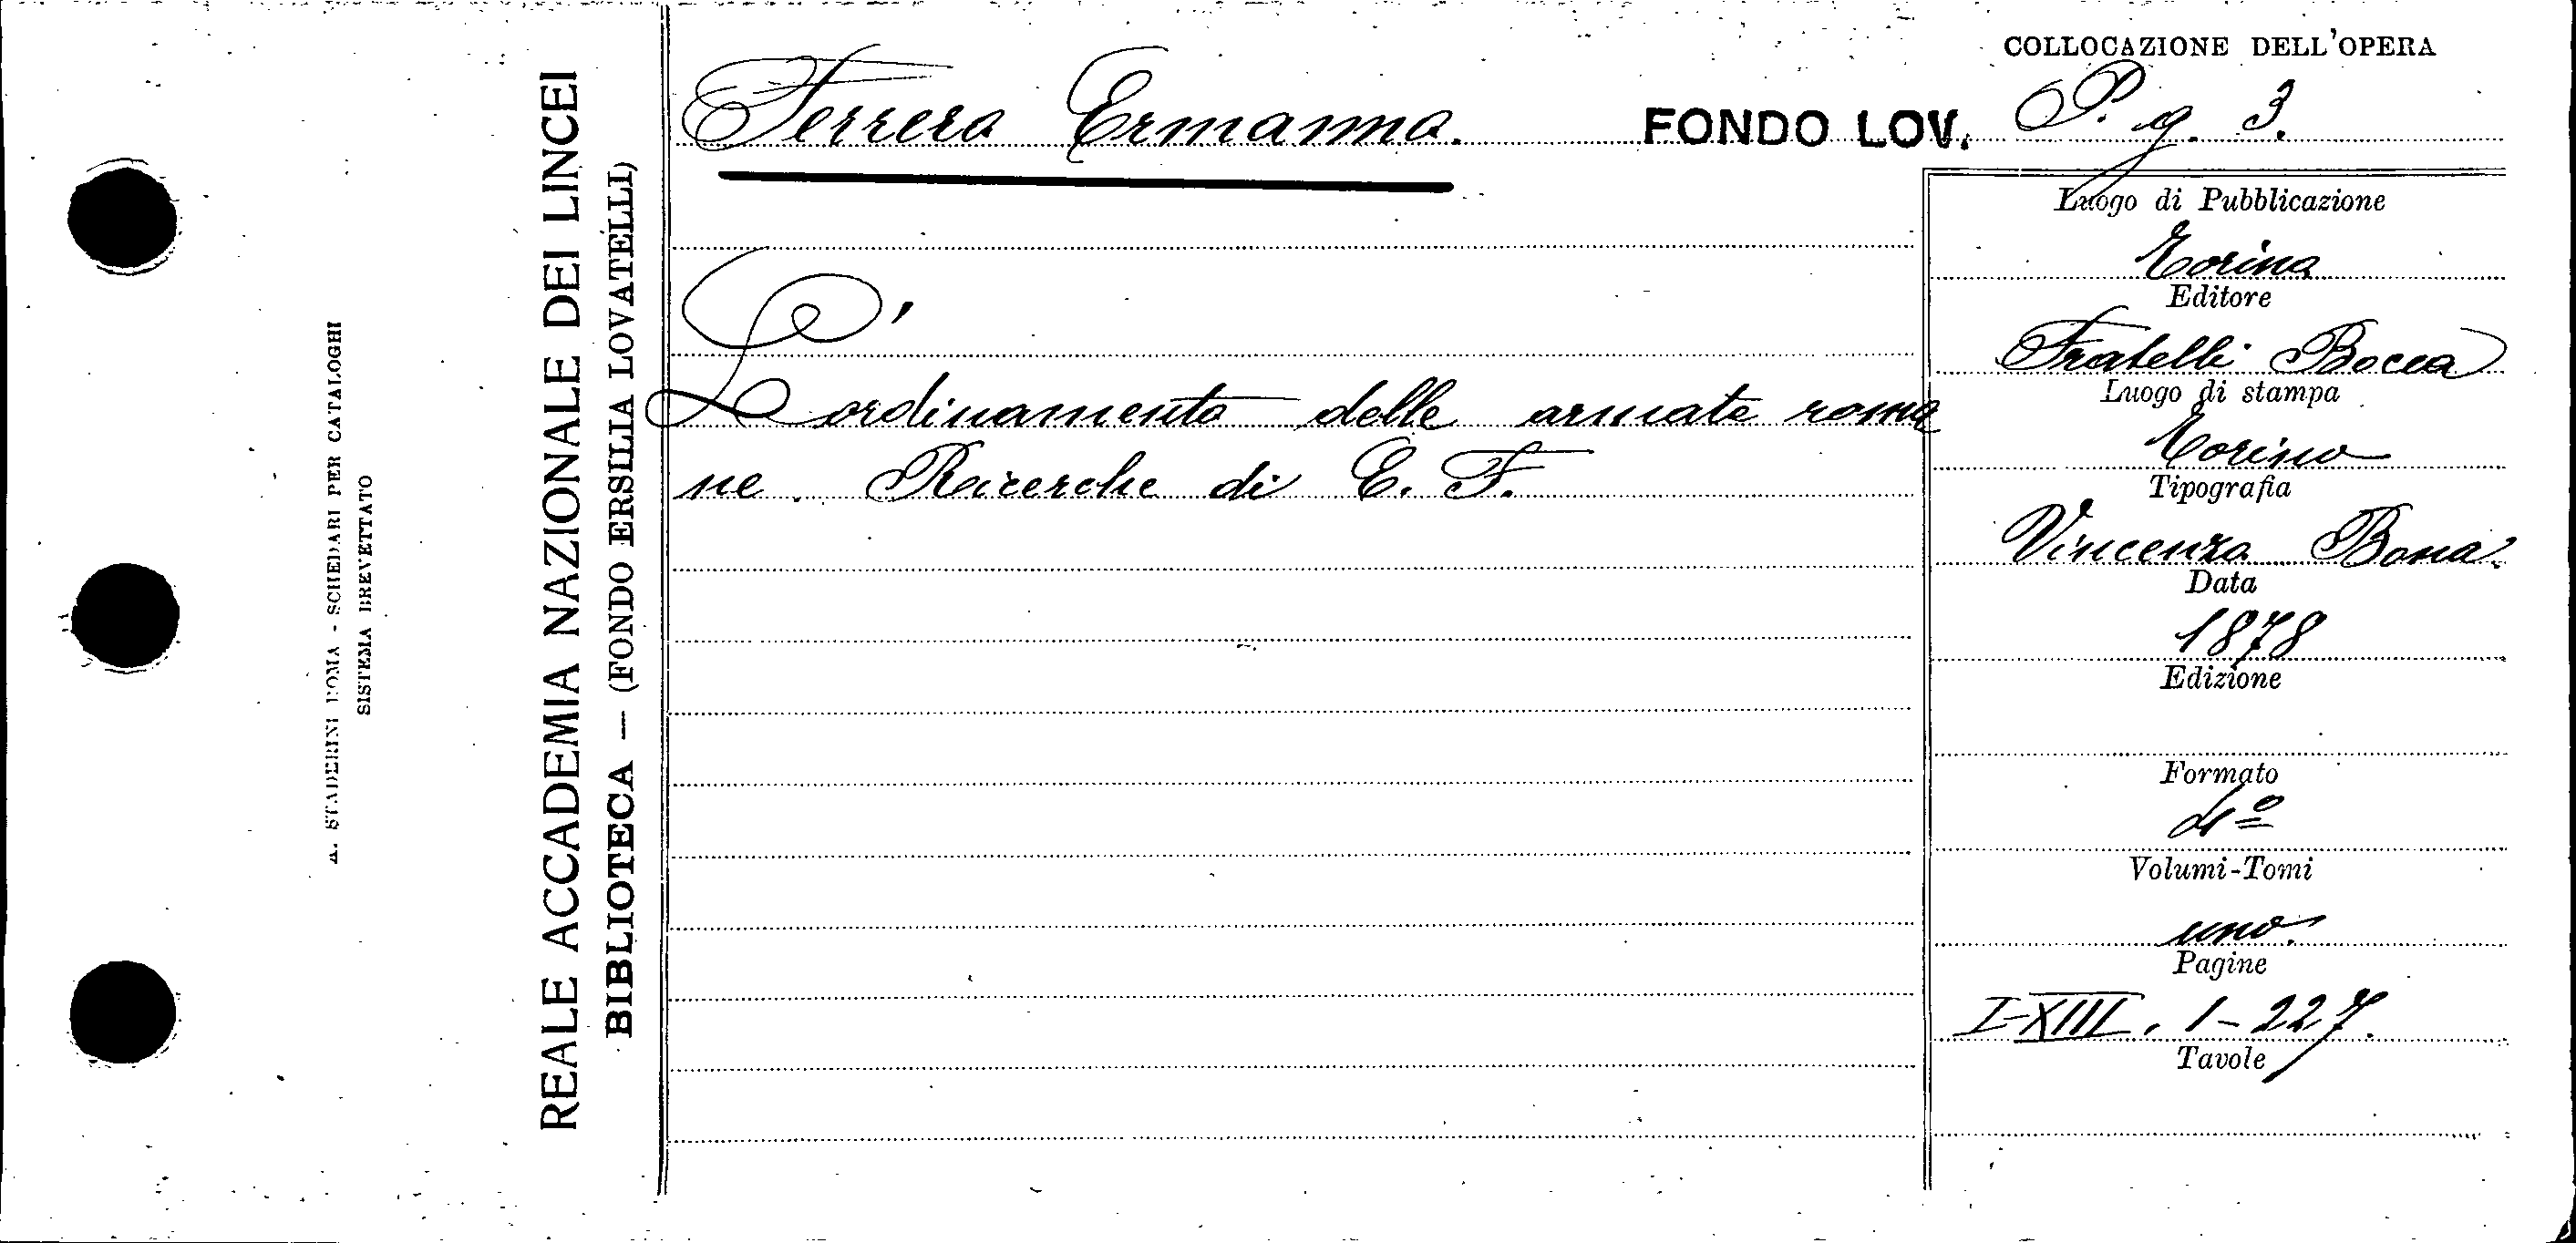 COLLOCAZIONE DELL'OPERA
Ferrero Ermanno. FONDO LOV. P. g. 3.
Luogo di Pubblicazione
Torino
Editore
Fratelli Bocca
Luogo di stampa
Torino
Tipografia
Vincenzo Bona
Data
1878
Edizione
Formato
4º
Volumi-Tomi
uno.
Pagine
I-XIII. 1-227.
Tavole
L'ordinamento delle armate roma
ne. Ricerche di E. F.
REALE ACCADEMIA NAZIONALE DEI LINCEI
BIBLIOTECA — (FONDO ERSILIA LOVATELLI)
A. STADERINI ROMA - SCHEDARI PER CATALOGHI
SISTEMA BREVETTATO